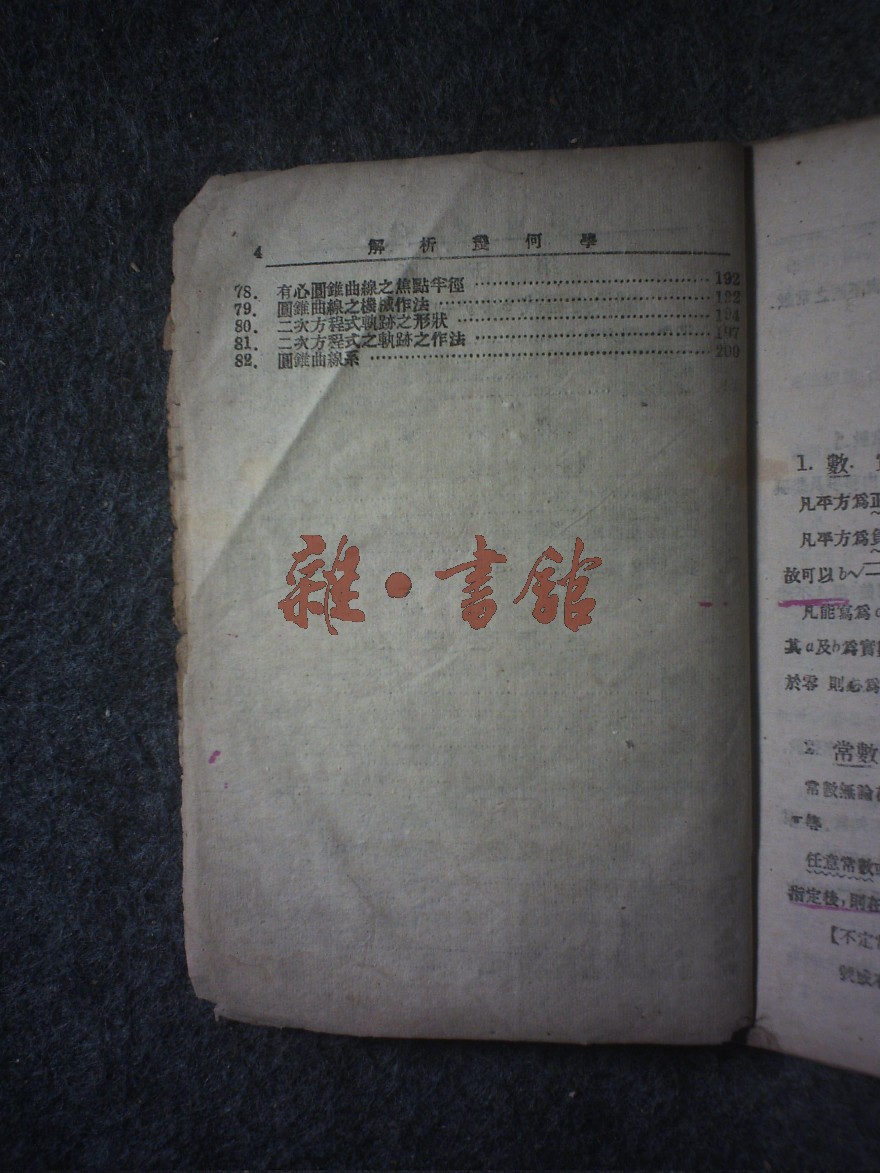 4 解析幾何學
78. 有心圓錐曲線之焦點半徑 192
79. 圓錐曲線之機械作法
80. 二次方程式軌跡之形狀 194
81. 二次方程式之軌跡之作法 197
82. 圓錐曲線系 200
雜・書館
1. 數.
凡平方為正
凡平方為負
故可以b√—
凡能寫為
其a及b為實
於零 則必為
2. 常數
常數無論
任意常數
指定後,則在
【不定